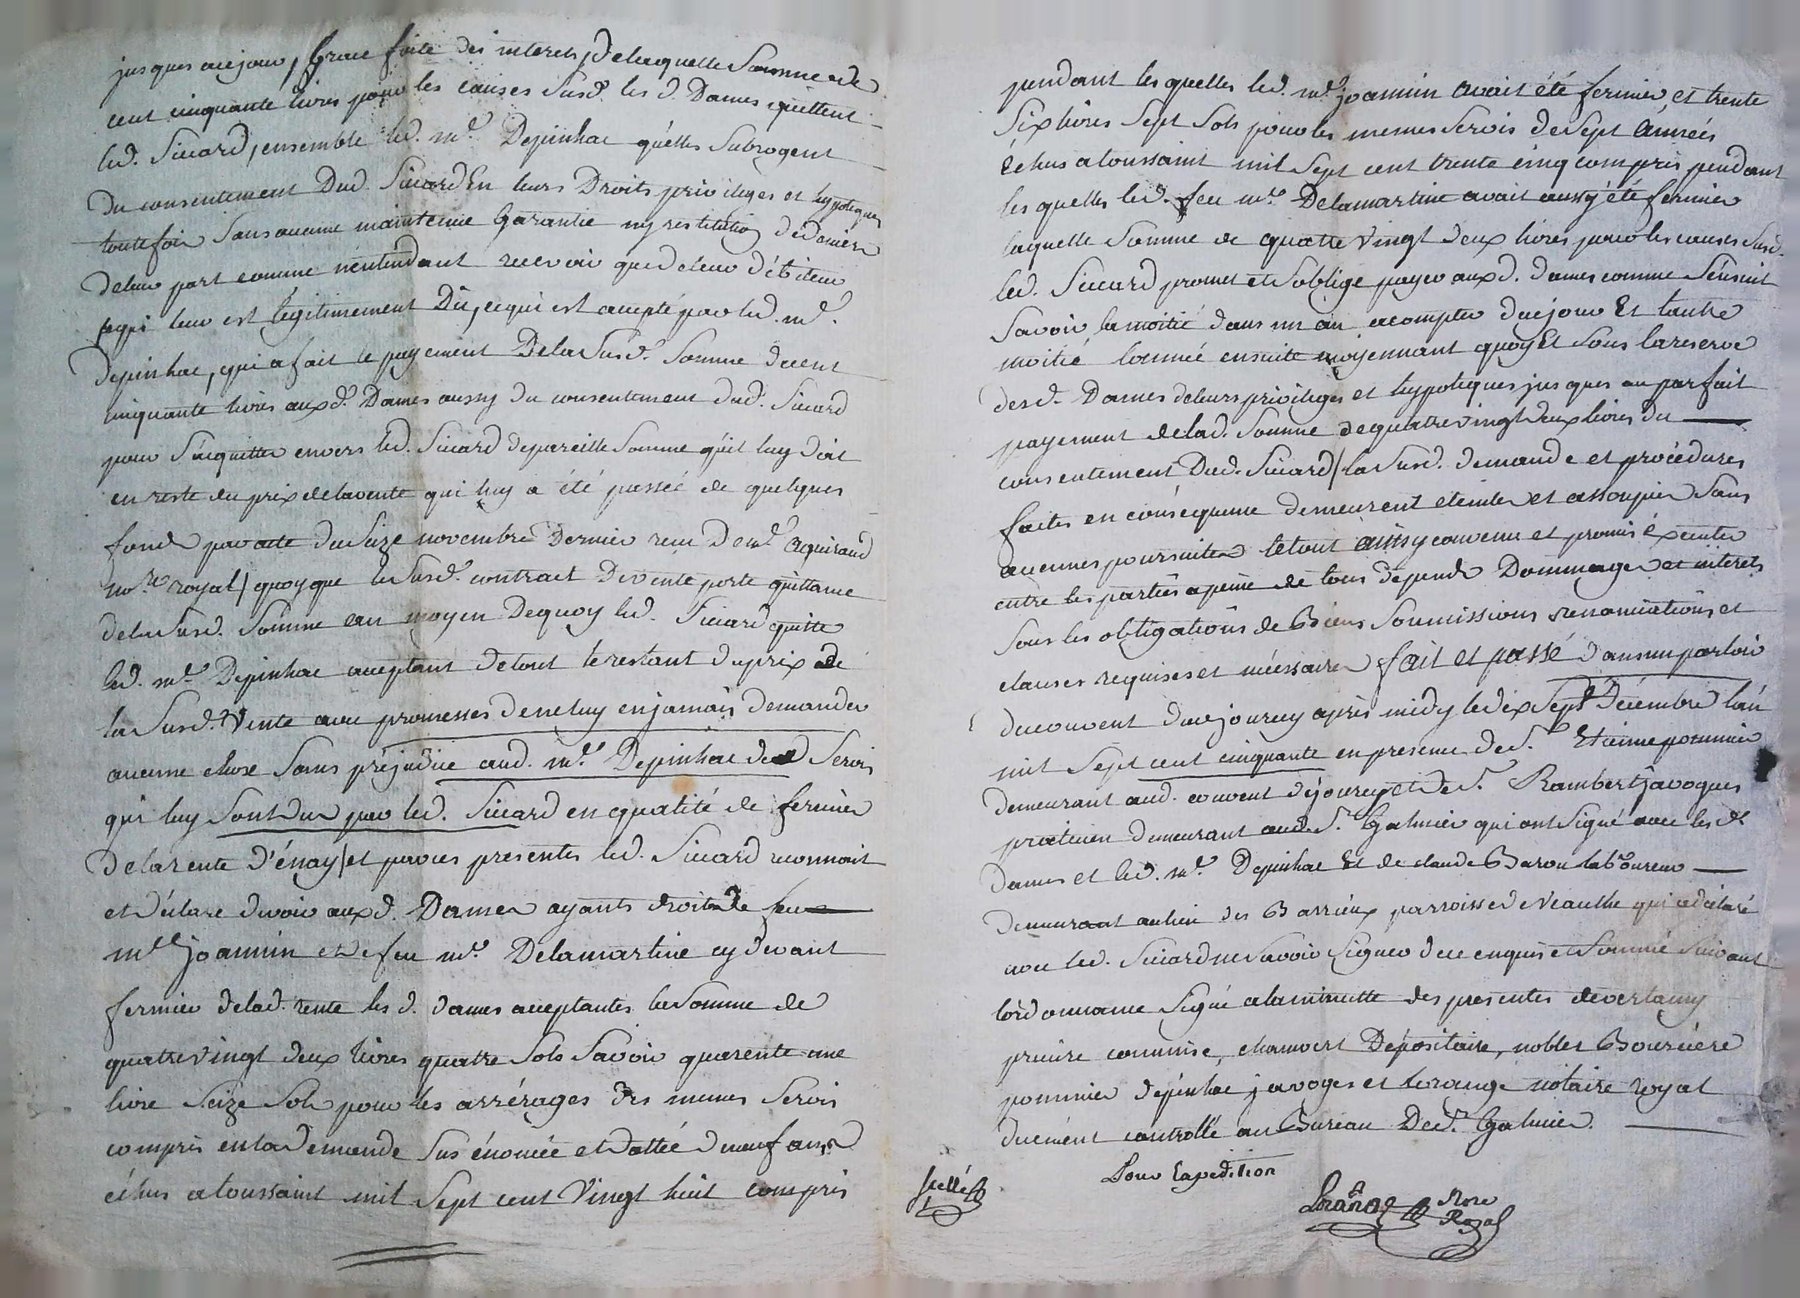 jusques acejour, grace faite des interets, delaquelle Somme de
cent cinquante livres pour les causes Susd. les d. Dames quittent
led. Sicard, ensemble led. me. Depinhac quelles Subrogent
du consentement Dud. Sicard En leurs Droits privileges et hypoteques
toutefois Sans aucune maintenue Garantie ny restitution de deniers
deleur part comme n'entendant recevoir que deleur débiteur
cequi leur est légitimement Dû, cequi est accepté par led. me.
Depinhac, qui a fait le payement Dela Susd. Somme decent
cinquante livres auxd. Dames aussy du consentement dud. Sicard
pour S'acquitter envers led. Sicard depareille Somme qu'il luy doit
en reste du prix delavente qui luy a été passée de quelques
fonds par acte du Seize novembre Dernier reçu De me. aguiraud
nore. royal/ quoyque le Susd. contract De vente porte quittance
dela Susd. Somme au moyen Dequoy led. Sicard quitte
led. me. Depinhac acceptant detout le restant duprix de
la Susd. Vente avec promesses deneluy enjamais demander
aucune chose Sans préjudice aud. me. Depinhac des Servis
qui luy Sont Dus par led. Sicard en qualité de fermier
delarente d'énay/ et par ces presentes led. Sicard reconnoit
et déclare devoir auxd. Dames ayants droits de feu
me. joannin et de feu me. Delamartine cy devant
fermier delad. rente les d. dames acceptantes la Somme de
quatrevingt deux livres quatre Sols Savoir quarente une
livre Seize Sols pour les arrérages des mêmes Servis
compris enla demande Sus énoncée et dattée de neuf ans
échus a toussaint mil Sept cent Vingt huit compris
pendant les quelles led. me. joannin avait été fermier, et trente
Six livres Sept Sols pour les memes Servis de Sept années
Echus a toussaint mil Sept cent trente cinq compris pendant
les quelles led. feu me. Delamartine avait aussy été fermier
laquelle Somme de quatre vingt deux livres pour les causes Susd.
led. Sicard promet et S'oblige payer aux d. dames comme S'ensuit
Savoir la moitié dans un an acompter dece jour Et lautre
moitié l'année ensuite moyennant quoy Et Sous lareserve
desd. Dames deleurs privileges et hypoteques jusques au parfait
payement delad. Somme dequatrevingt deux livres du
consentement Dud. Sicard/ la Susd. demande et procédures
faites en conséquence demeurent eteintes et assoupies Sans
aucunes poursuites letout ainsy convenu et promis éxécuter
entre les parties apeine de tous dépends Dommages et interets
Sous les obligations de Biens Soumissions renonciations et
clauses requises et nécessaires fait et passé dans un parloir
du couvent duejourcy après midy le dix Sept Décembre l'an
mil Sept cent cinquante en presence de Sr. Etienne pommier
demeurant aud. couvent déjourcy et de Sr. Rambert javogues
praticien demeurant aud. St. Galmier qui ont Signé avec lesd.
dames et led. me. Depinhac Et de claude Baron laboureur
demeurant aulieu des Barrieux parroisse de Veauche qui a déclaré
avec led. Sicard ne Savoir Signer dece enquis et Sommé Suivant
l'ordonnance Signé ala minutte des presentes deverlamy
prieure commise, chamvert Dépositaire, nobles Boursière
pommier depinhac javoges et lorange notaire royal
duement controllé au Bureau De St. Galmier.
Pour Expédition
Scellé
Lorange Nore
Royal